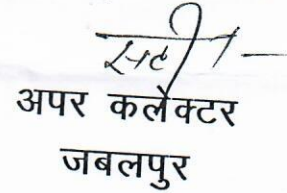 सही/-
अपर कलेक्टर
जबलपुर